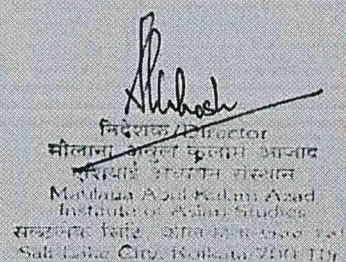 निदेशक/Director
मौलाना अबुल कलाम आजाद
एशियाई अध्ययन संस्थान
Maulana Abul Kalam Azad
Institute of Asian Studies
सिटी,
Salt Lake City, Kolkata-700